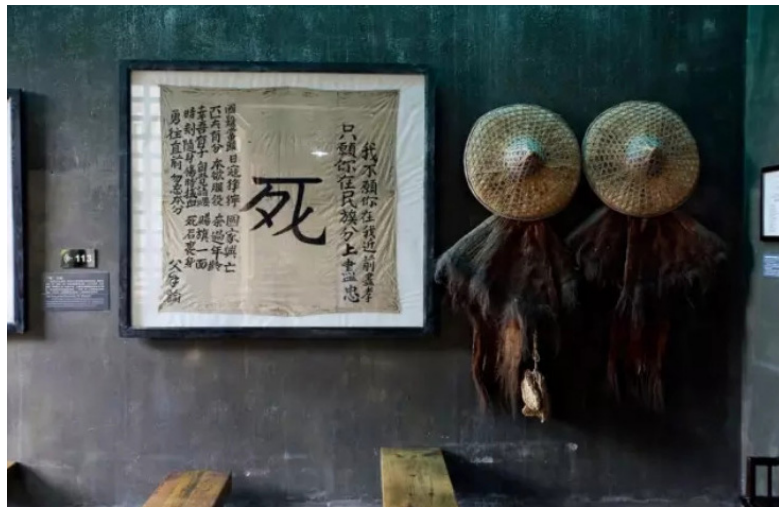 我不願你在我近前盡孝
只願你在民族分上盡忠
死
國難當頭 日寇猙獰 國家興亡
匹夫有分 本欲服役 奈過年齡
幸吾有子 自覺請纓 賜旗一面
時刻隨身 傷時拭血 死后裹身
勇往直前 勿忘本分
父手諭
113